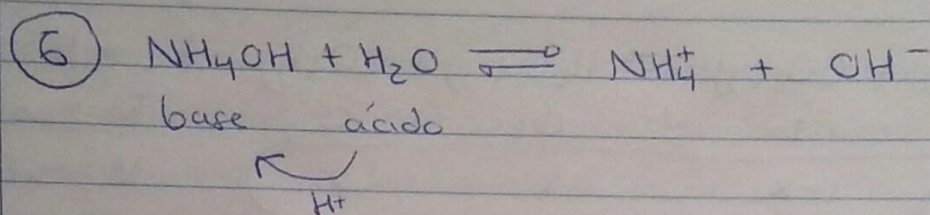 6 NH₄OH + H₂O ⇌ NH₄⁺ + OH⁻
base ácido
H+